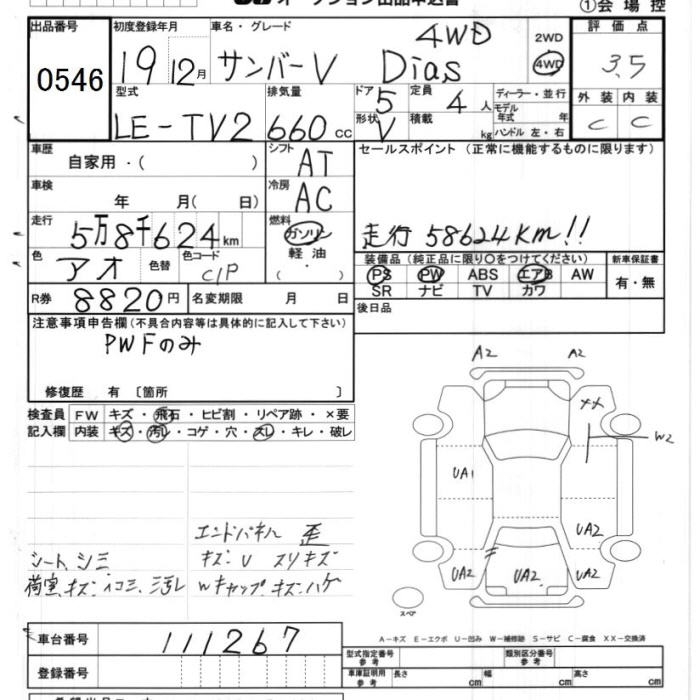 オークション出品申込書
①会場控
出品番号 0546
初度登録年月 19 12月
車名・グレード サンバーV 4WD Dias
2WD
4WD
評価点 3.5
型式 LE-TV2
排気量 660 cc
ドア 5
形状 V
定員 4 人
積載 kg
ディーラー・並行
モデル年式 年
ハンドル 左・右
外装 C
内装 C
車歴 自家用・( )
シフト AT
セールスポイント (正常に機能するものに限ります)
車検 年 月( 日)
冷房 AC
走行 5万8千624 km
燃料 ガソリン
軽油
・( )
走行 58624km!!
色 アオ
色替
カラーコード C/P
装備品 (純正品に限り○をつけてください)
新車保証書
PS PW ABS エアB AW
SR ナビ TV カワ
有・無
R券 8820円
名変期限 月 日
後日品
注意事項申告欄 (不具合内容等は具体的に記入して下さい)
PWFのみ
修復歴 有 〔箇所 〕
検査員 FW キズ・飛石・ヒビ割・リペア跡・×要
記入欄 内装 キズ・汚レ・コゲ・穴・スレ・キレ・破レ
A2 A2
××
W2
UA1
UA2
UA2 UA2 UA2
スペア
エンドパネル 歪
シート、シミ キズ・U スリキズ
荷室、キズ・イコミ、ヨゴレ Wキャップ キズ・ハゲ
A-キズ E-エクボ U-凹み W-補修跡 S-サビ C-腐食 XX-交換済
車台番号 111267
登録番号
型式指定番号 参考
類別区分番号 参考
車庫証明用 参考 長さ cm 幅 cm 高さ cm